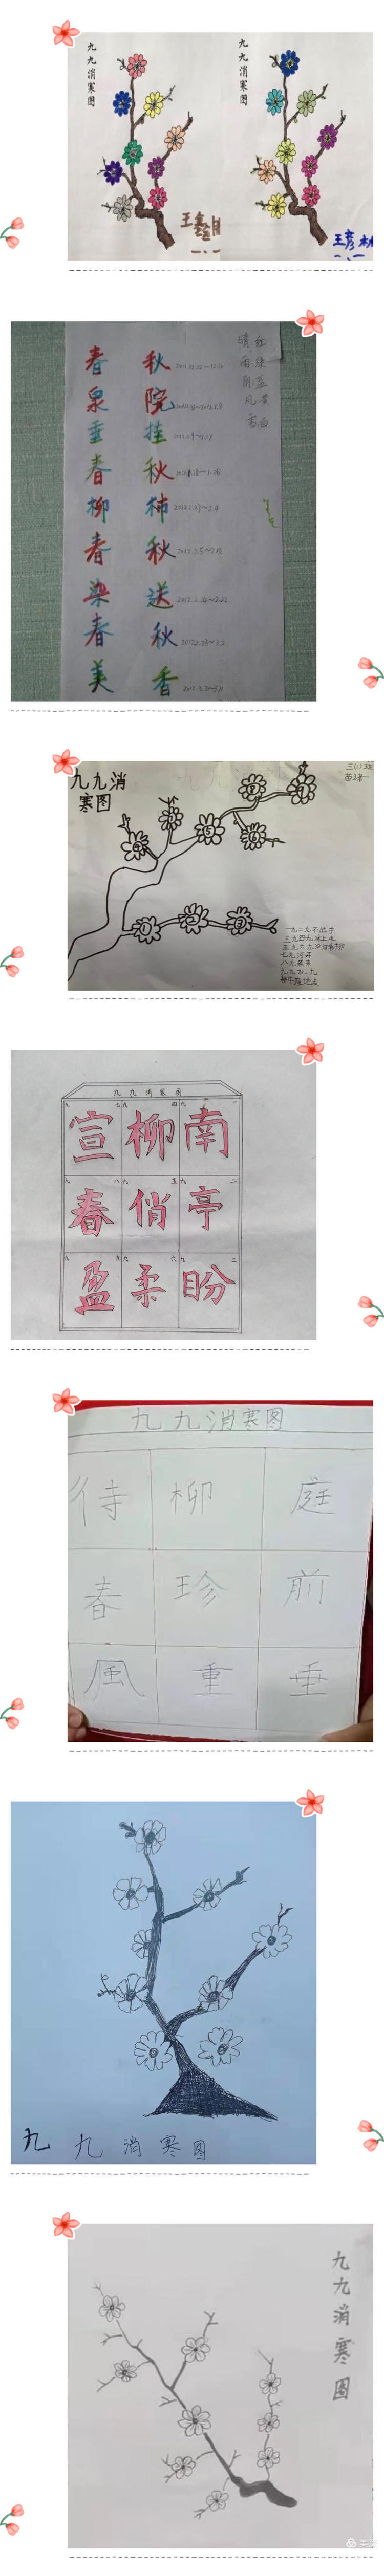 九九消寒图
九九消寒图
春 秋
泉 院
垂 挂
春 秋
柳 柿
春 秋
染 送
春 秋
美 香
晴 红
雨 绿
阴 蓝
风 黄
雪 白
九九消
寒图
一九二九不出手
三九四九冰上走
五九六九沿河看柳
七九河开
八九燕来
九九加一九
耕牛遍地走
九九消寒图
宣 柳 南
春 俏 亭
盈 柔 盼
九九消寒图
待 柳 庭
春 珍 前
風 重 垂
九九消寒图
九九消寒图